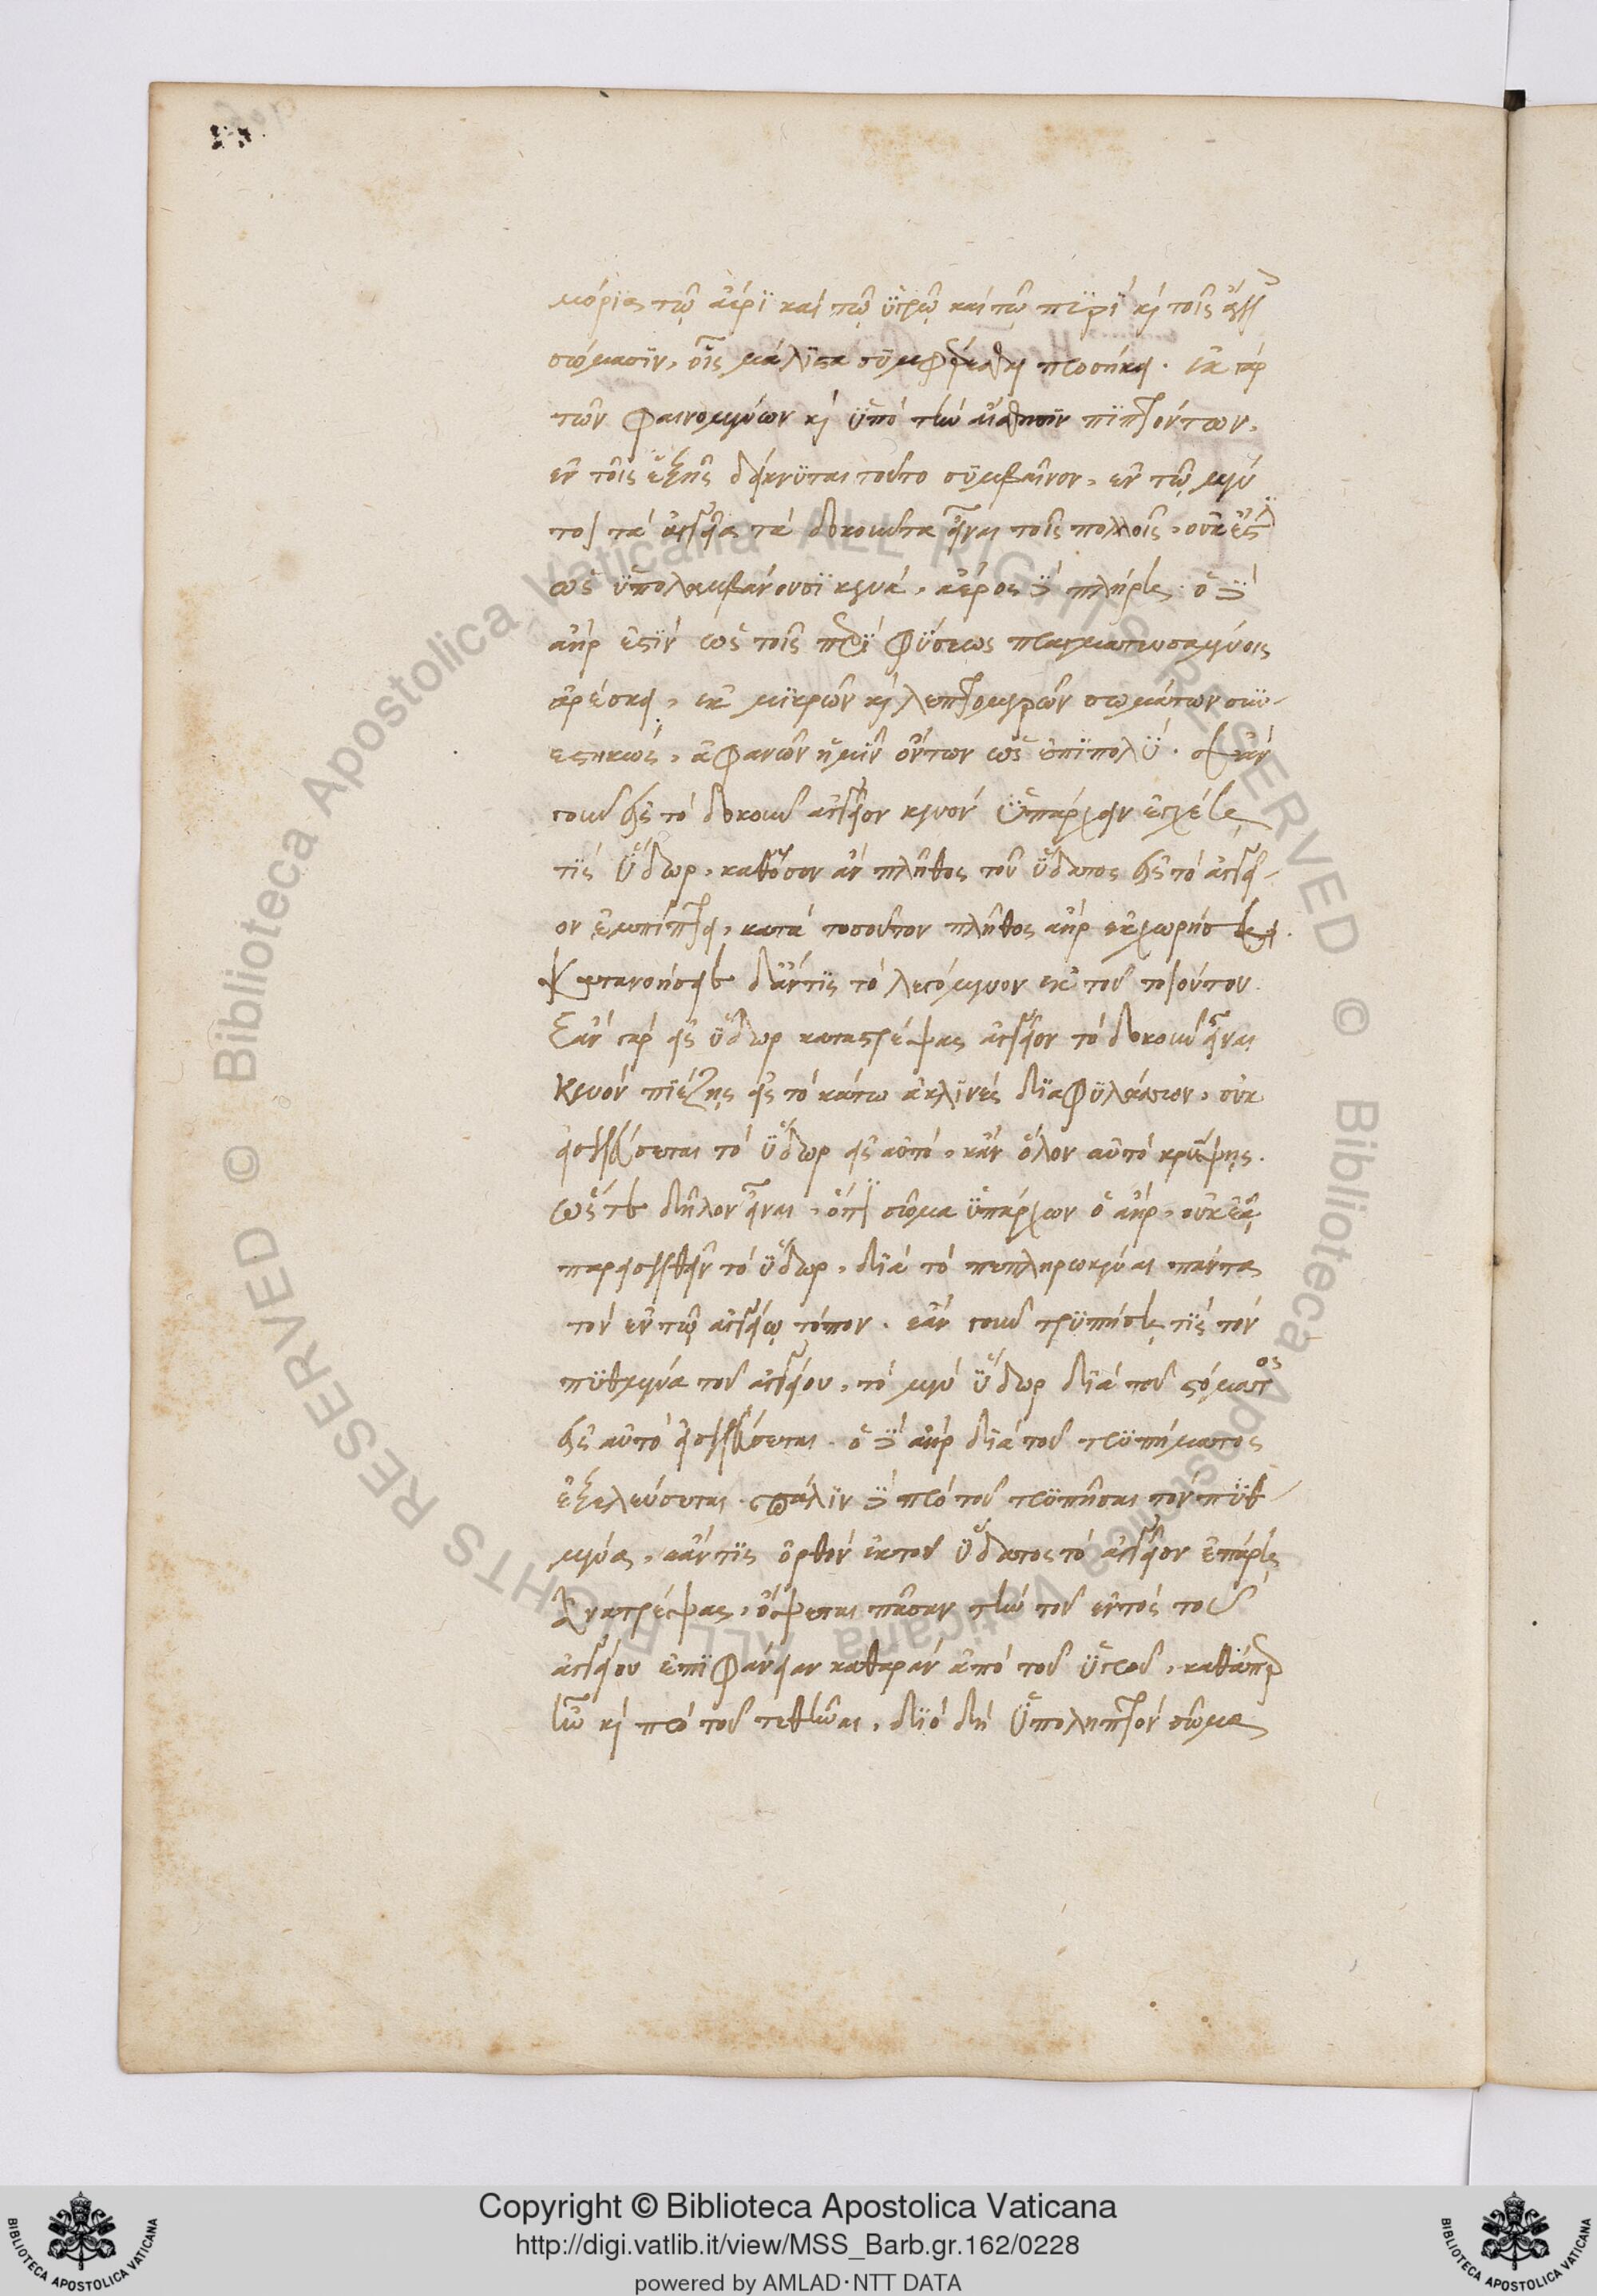 μόρια τῷ ἀέρι καὶ τῷ ὑγρῷ καὶ τῷ πυρὶ κỳ τοῖς ἄλλ
σώμασιν, οἷς μάλιστα συμφύεσθαι προσήκει. ἐκ γὰρ
τῶν φαινομένων κỳ ὑπὸ τὴν αἴσθησιν πιπτόντων,
ἐν τοῖς ἑξῆς δείκνυται τοῦτο συμβαῖνον, ἐν τῷ μέν
τοι τὰ ἀγγεῖα τὰ δοκοῦντα εἶναι τοῖς πολλοῖς, οὐκ ἔστιν
ὡς ὑπολαμβάνουσι κενά, ἀέρος δὲ πλήρη· ὁ δὲ
ἀὴρ ἐστὶν ὡς τοῖς περὶ φύσεως πραγματευσαμένοις
ἀρέσκει, ἐκ μικρῶν κỳ λεπτομερῶν σωμάτων συν-
εστηκώς, ἀφανῶν ἡμῖν ὄντων ὡς ἐπιπολύ. ἐὰν
γοῦν εἰς τὸ δοκοῦν ἀγγεῖον κενὸν ὑπάρχειν ἐγχέῃ
τὶς ὕδωρ, καθόσον ἂν πλῆθος τοῦ ὕδατος εἰς τὸ ἀγγεῖ-
ον ἐμπίπτει, κατὰ τοσοῦτον πλῆθος ἀὴρ ἐκχωρήσει.
κατανοήσειε δ' ἄν τις τὸ λεγόμενον ἐκ τοῦ τοιούτου.
Ἐὰν γὰρ εἰς ὕδωρ καταστρέψας ἀγγεῖον τὸ δοκοῦν εἶναι
κενὸν πιέζης εἰς τὸ κάτω ἀκλινὲς διαφυλάσσων, οὐκ
εἰσελεύσεται τὸ ὕδωρ εἰς αὐτό, κἂν ὅλον αὐτὸ κρύψης.
ὥστε δῆλον εἶναι, ὅτι σῶμα ὑπάρχων ὁ ἀὴρ, οὐκ ἐᾷ
παρεισελθεῖν τὸ ὕδωρ, διὰ τὸ πεπληρωκέναι πάντα
τὸν ἐν τῷ ἀγγείῳ τόπον. ἐὰν γοῦν τρυπήσῃ τὶς τὸν
πυθμένα τοῦ ἀγγείου, τὸ μὲν ὕδωρ διὰ τοῦ στόματος
εἰς αὐτὸ εἰσελεύσεται. ὁ δὲ ἀὴρ διὰ τοῦ τρυπήματος
ἐξελεύσεται. πάλιν δὲ πρὸ τοῦ τρυπῆσαι τὸν πυθ-
μένα, ἐάν τις ὀρθὸν ἐκ τοῦ ὕδατος τὸ ἀγγεῖον ἐπάρῃ
ἀνατρέψας, ὄψεται πᾶσαν τὴν τοῦ ἐντὸς τοῦ
ἀγγείου ἐπιφάνειαν καθαρὰν ἀπὸ τοῦ ὑγροῦ, καθάπερ
ἦν κỳ πρὸ τοῦ τεθῆναι, διὸ δὴ ὑποληπτέον σῶμα
Copyright © Biblioteca Apostolica Vaticana
http://digi.vatlib.it/view/MSS_Barb.gr.162/0228
powered by AMLAD·NTT DATA